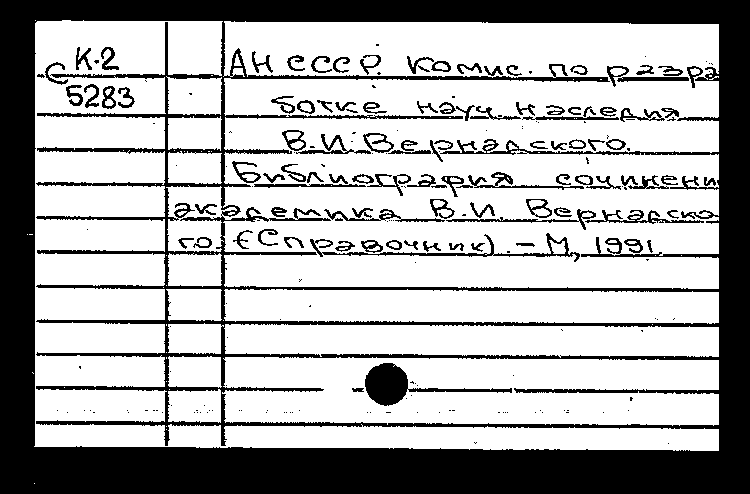 К-2
С 5283
АН СССР. Комис. по разра
ботке науч. наследия
В.И. Вернадского.
Библиография сочинени
академика В.И. Вернадско
го: (Справочник). – М, 1991.